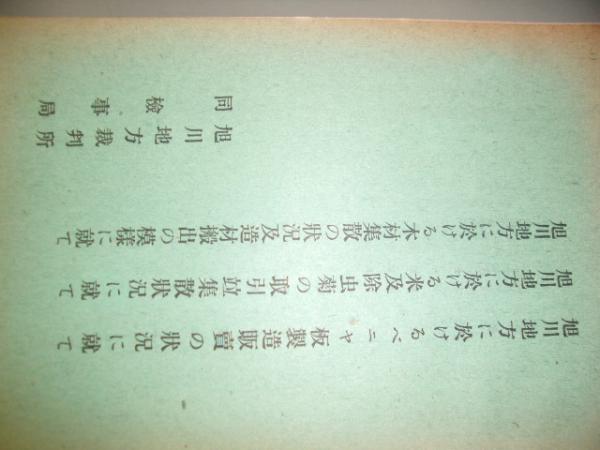 旭川地方に於けるベニヤ板製造販賣の狀況に就て
旭川地方に於ける米及除虫菊の取引竝集散狀況に就て
旭川地方に於ける木材集散の狀況及造材搬出の模樣に就て
旭川地方裁判所
同檢事局